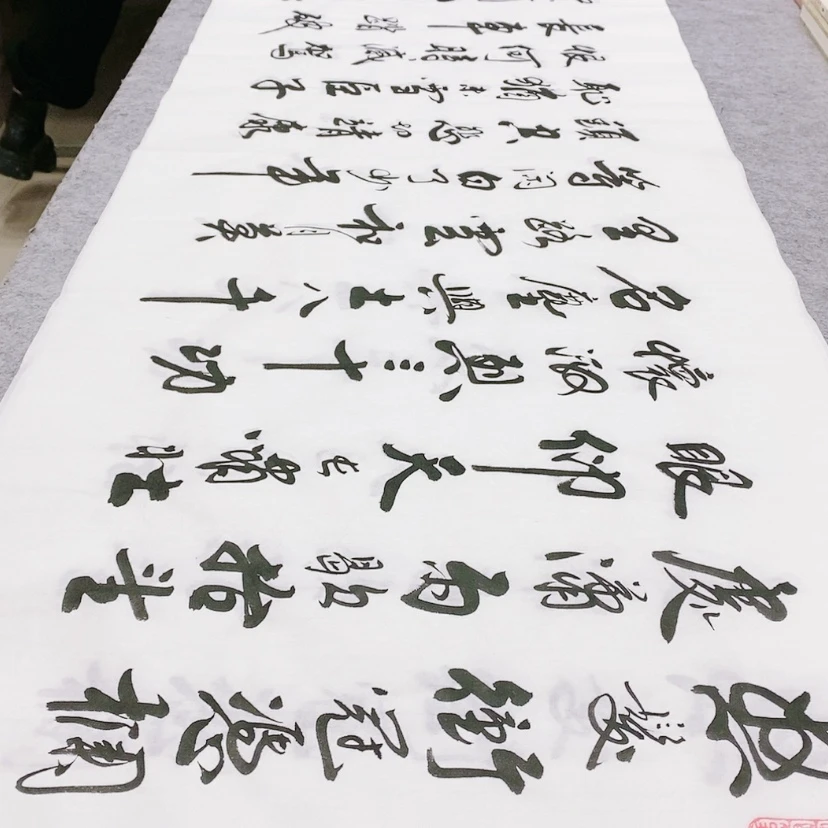 怒髮衝冠憑欄
處瀟雨歇抬望
眼仰天長嘯壯
懷激烈三十功
名塵與土八千
里路雲和月莫
等閑白了少年
頭空悲切靖康
恥猶未雪臣子
恨何時滅駕
長車踏破